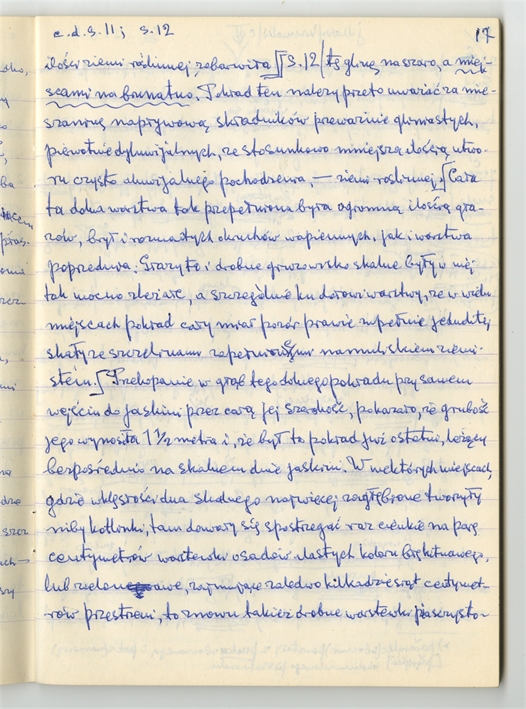 c.d.s. 11; s. 12
17
ilości ziemi roślinnej, zabarwiła [s. 12/ tę glinę na szaro, a miej-
scami na brunatno. Pokład ten należy przeto uważać za mie-
szaninę napływową składników przeważnie gliniastych,
pierwotnie dyluwijalnych, ze stosunkowo mniejszą ilością utwo-
ru czysto aluwijalnego pochodzenia, — ziemi roślinnej [Cała
ta dolna warstwa tak przepełniona była ogromną ilością gła-
zów, brył i rozmaitych okruchów wapiennych, jak i warstwa
poprzednia. Głazy te i drobne gruzowisko skalne były w niej
tak mocno zleżałe, a szczególnie ku dołowi warstwy, że w wielu
miejscach pokład cały miał pozór prawie zupełnie jednolitej
skały ze szczelinami zapełnionymi namuliskiem ziemi-
stem. [Przekopanie w głąb tego dolnego pokładu przy samem
wejściu do jaskini przez całą jej szerokość, pokazało, że grubość
jego wynosiła 1 1/2 metra i, że był to pokład już ostatni, leżący
bezpośrednio na skalnem dnie jaskini. W niektórych miejscach,
gdzie wklęsłości dna skalnego najwięcej zagłębione tworzyły
niby kotlinki, tam dawały się spostrzegać raz cienkie na parę
centymetrów warstewki osadów ilastych koloru błękitnawego,
lub zielonawe, zajmujące zaledwo kilkadziesiąt centymet-
rów przestrzeni, to znowu takież drobne warstewki piaszczysto-